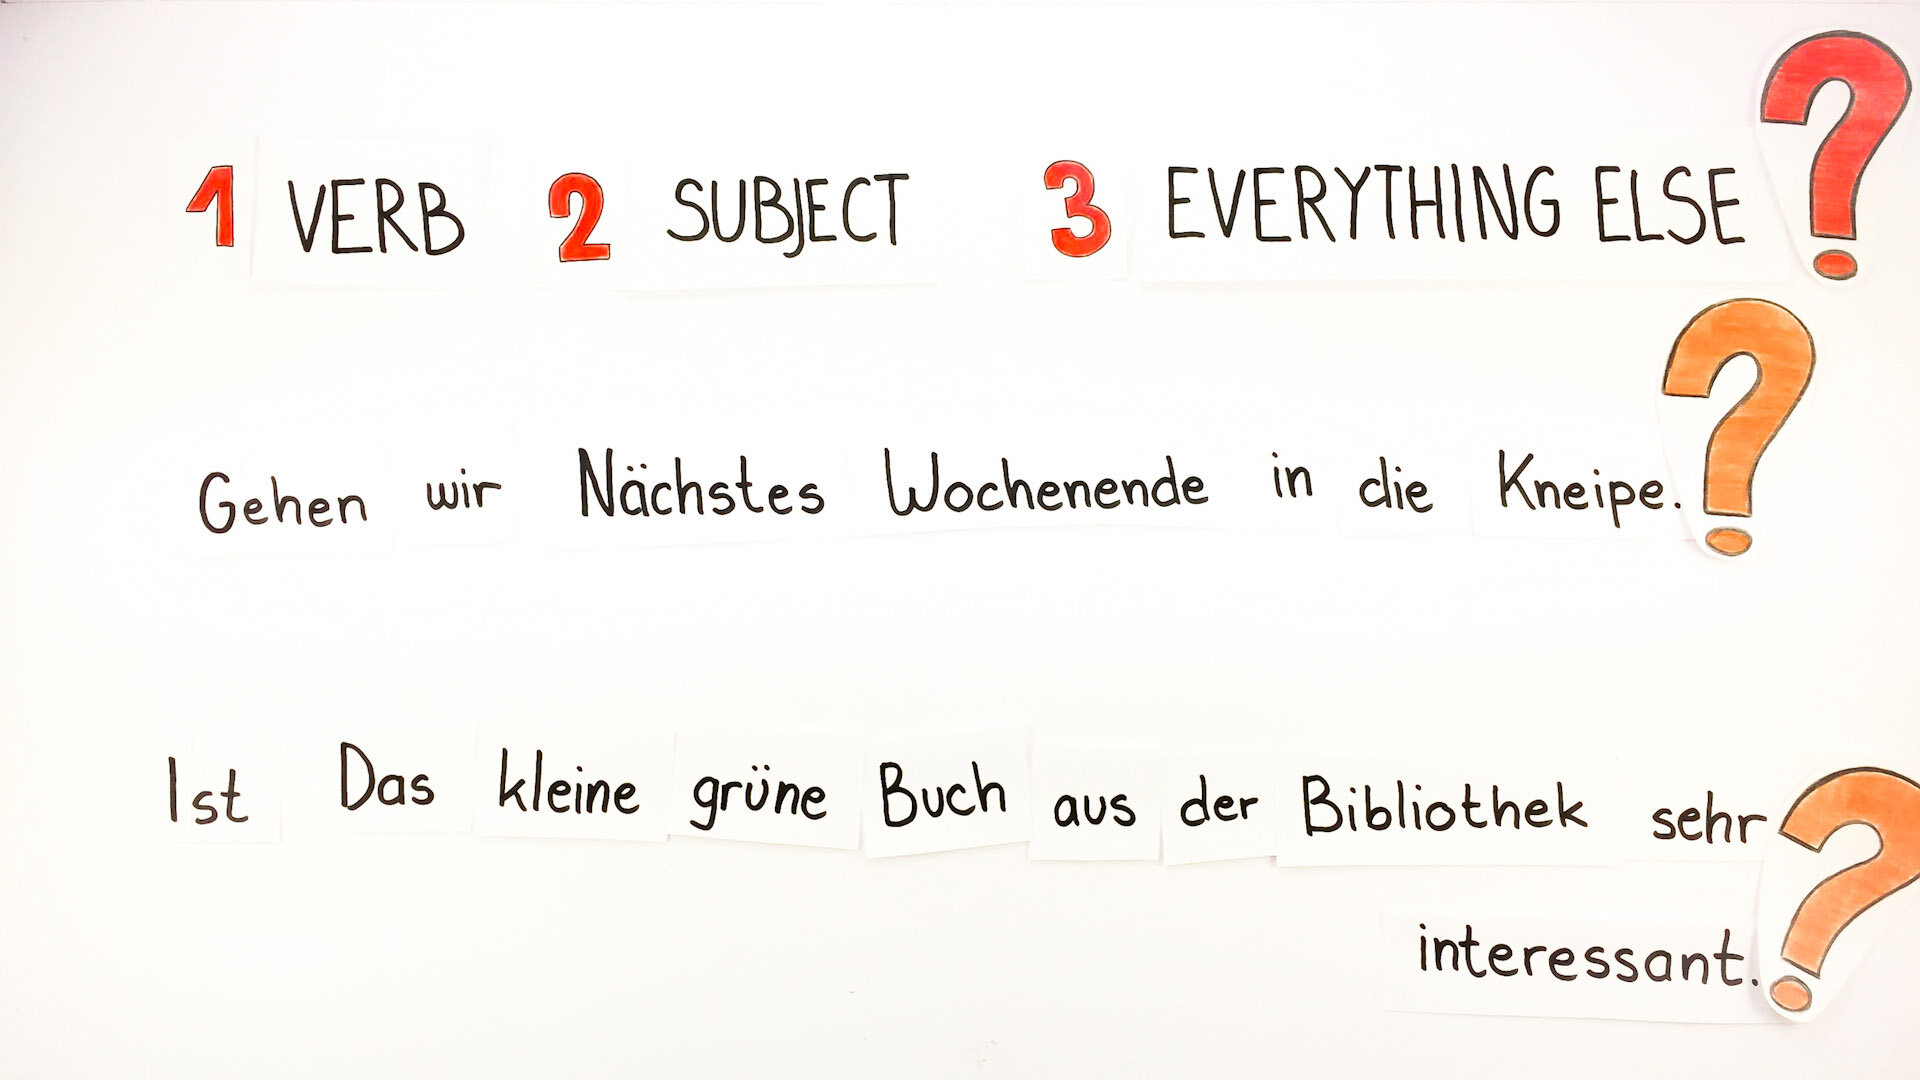 1 VERB 2 SUBJECT 3 EVERYTHING ELSE ?
Gehen wir Nächstes Wochenende in die Kneipe. ?
Ist Das kleine grüne Buch aus der Bibliothek sehr
interessant. ?